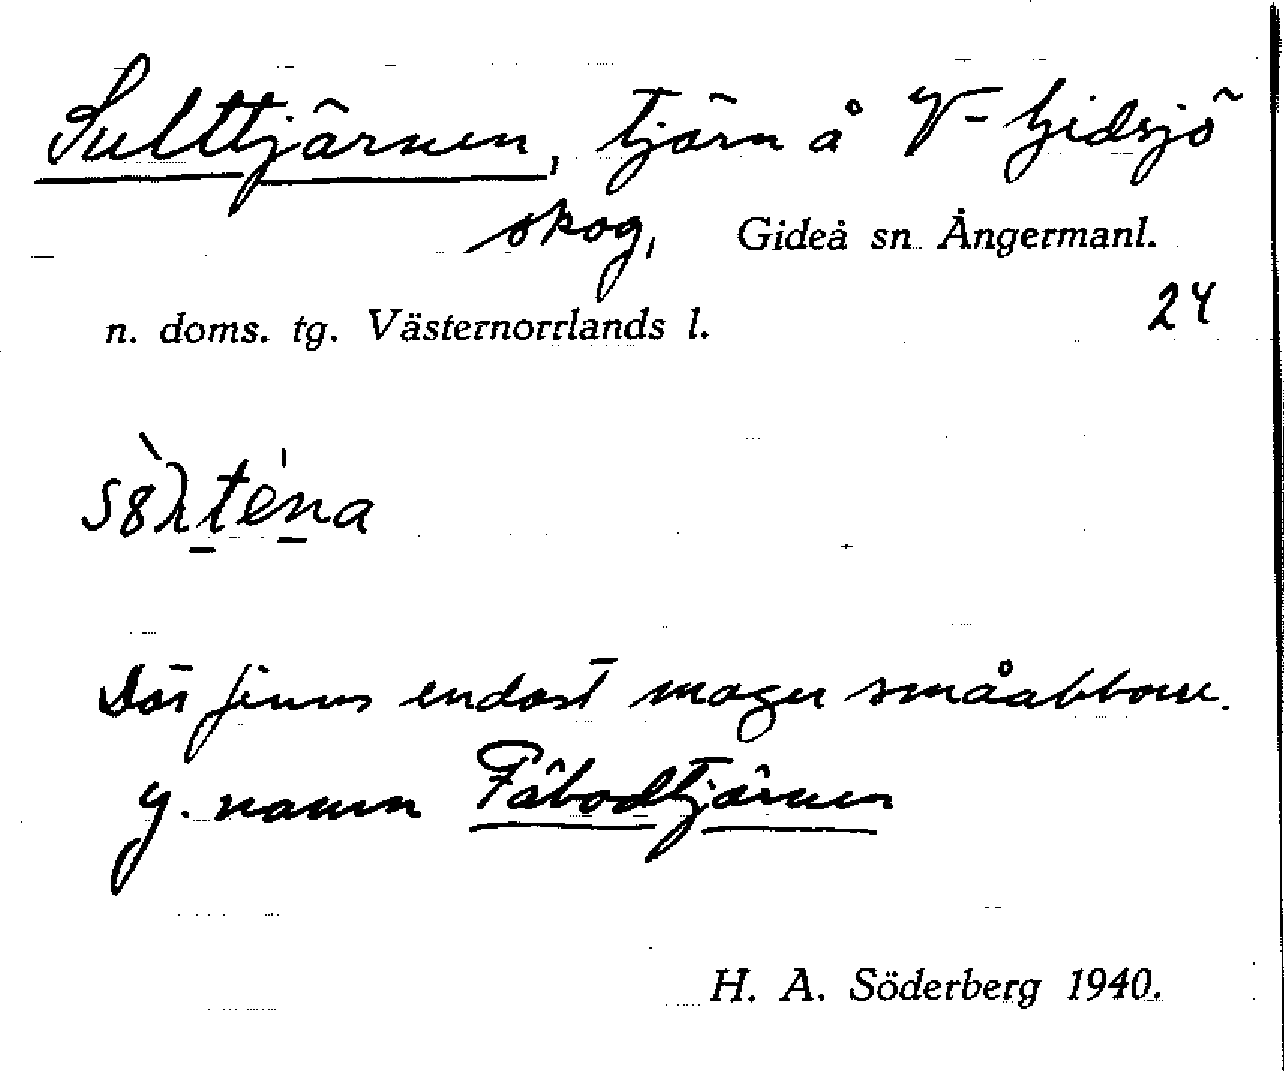 Sulttjärnen, tjärn å V-Gidsjö
skog, Gideå sn Ångermanl.
24
n. doms. tg. Västernorrlands l.
Där finns endast mager småabborre.
y. namn Fäbodtjärnen
H. A. Söderberg 1940.